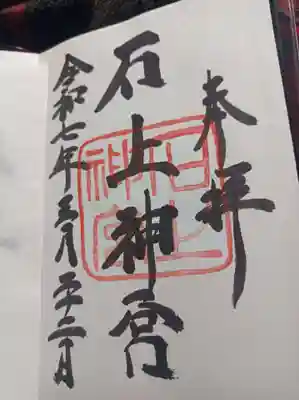 奉拝
石上神宮
令和七年三月二十二日